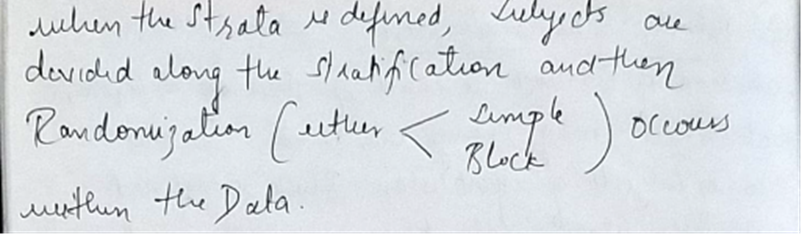 when the Strata is defined, Subjects are
devided along the stratification and then
Randomization (either < Simple
Block) occours
within the Data.